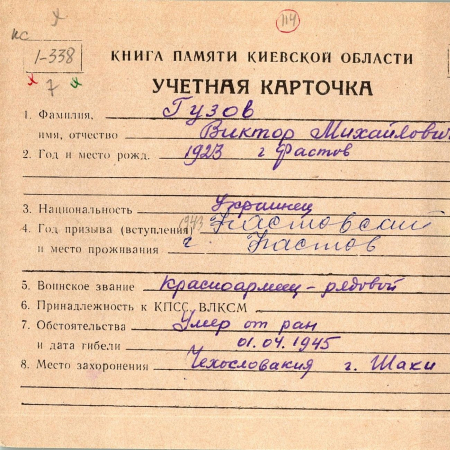 114
ис
1-338
7
КНИГА ПАМЯТИ КИЕВСКОЙ ОБЛАСТИ
УЧЕТНАЯ КАРТОЧКА
1. Фамилия, Гузов
имя, отчество Виктор Михайлович
2. Год и место рожд. 1923 г Фастов
3. Национальность Украинец
4. Год призыва (вступления) 1943 Фастовский
и место проживания г. Фастов
5. Воинское звание красноармеец - рядовой
6. Принадлежность к КПСС, ВЛКСМ
7. Обстоятельства Умер от ран
и дата гибели 01.04.1945
8. Место захоронения Чехословакия г. Шаки